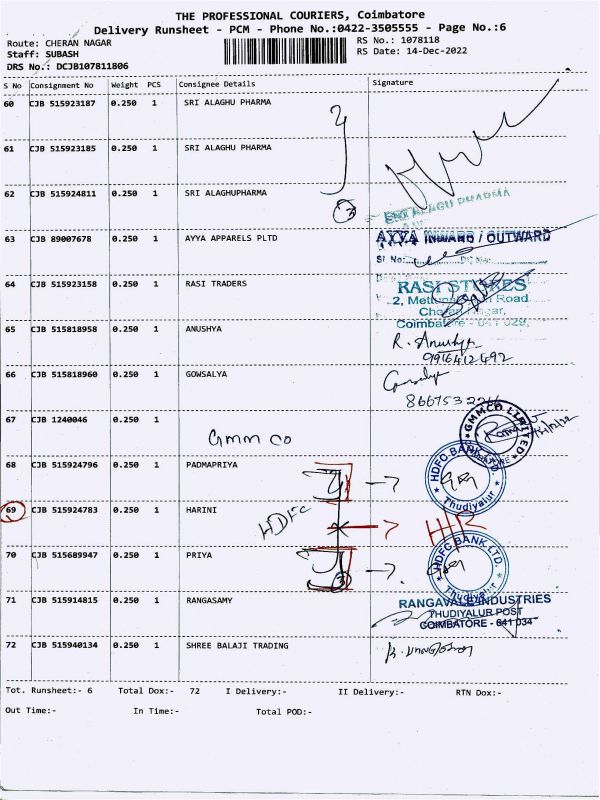 THE PROFESSIONAL COURIERS, Coimbatore
Delivery Runsheet - PCM - Phone No.:0422-3505555 - Page No.:6
Route: CHERAN NAGAR
RS No.: 1078118
Staff: SUBASH
RS Date: 14-Dec-2022
DRS No.: DCJB107811806
S No Consignment No Weight PCS Consignee Details Signature
60 CJB 515923187 0.250 1 SRI ALAGHU PHARMA
61 CJB 515923185 0.250 1 SRI ALAGHU PHARMA
62 CJB 515924811 0.250 1 SRI ALAGHUPHARMA
3
SRI ALAGU PHARMA
63 CJB 89007678 0.250 1 AYYA APPARELS PLTD
AYYA INWARD / OUTWARD
Sl No:
64 CJB 515923158 0.250 1 RASI TRADERS
RASI STORES
2, Road
Nagar,
Coimbatore - 641 029,
65 CJB 515818958 0.250 1 ANUSHYA
R. Anushya
9916412492
66 CJB 515818960 0.250 1 GOWSALYA
Gowsalya
67 CJB 1240046 0.250 1
GMM CO
GMMCO LIMITED
68 CJB 515924796 0.250 1 PADMAPRIYA
HDFC BANK LTD.
Thudiyalur
69 CJB 515924783 0.250 1 HARINI
HDFC
70 CJB 515689947 0.250 1 PRIYA
3
HDFC BANK LTD.
Thudiyalur
71 CJB 515914815 0.250 1 RANGASAMY
RANGAVALE INDUSTRIES
THUDIYALUR POST
COIMBATORE - 641 034
72 CJB 515940134 0.250 1 SHREE BALAJI TRADING
Tot. Runsheet:- 6 Total Dox:- 72 I Delivery:- II Delivery:- RTN Dox:-
Out Time:- In Time:- Total POD:-